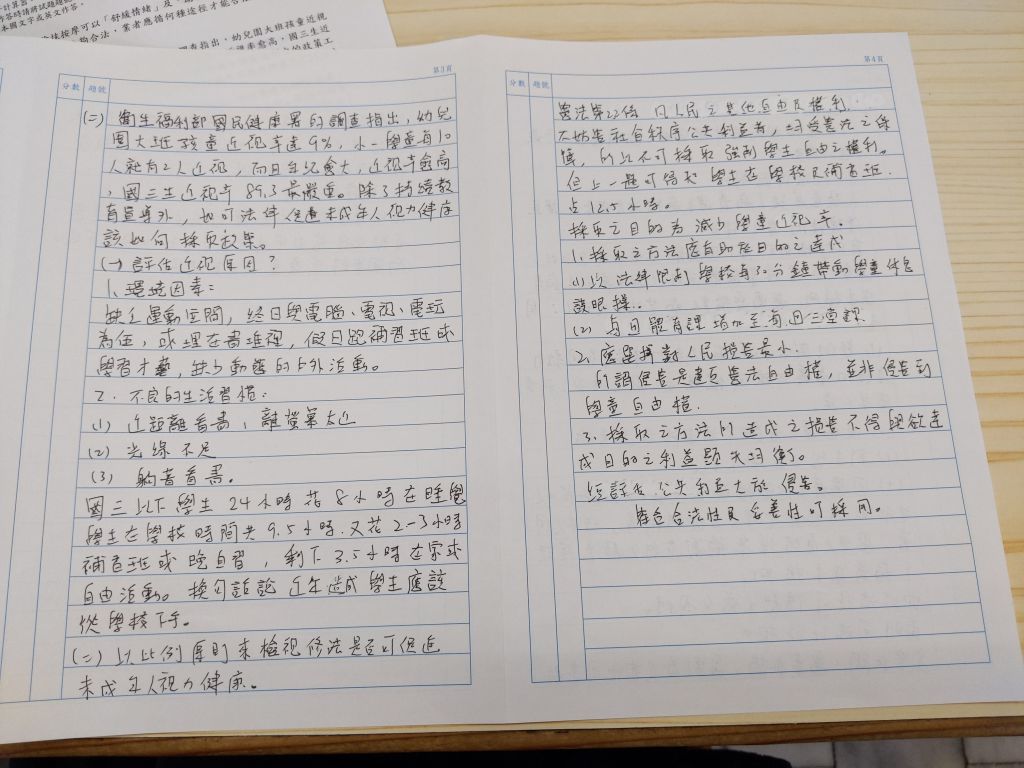 本國文字或英文作答。
按摩可以「舒緩情緒」及
合法,業者應循何種途徑才能合
指出,幼兒園大班孩童近視
率愈高,國三生近
的政策工
第3頁
分數 題號
(二) 衛生福利部國民健康署的調查指出,幼兒
園大班孩童近視率達9%,小一學童每10
人就有2人近視,而且年紀愈大,近視率愈高
,國三生近視率89.3最嚴重。除了持續教
育宣導外,也可法律促進未成年人視力健康
該如何採取政策。
(一) 評估近視原因?
1、環境因素:
缺乏運動空間,終日與電腦、電視、電玩
為伍,或埋在書堆裡,假日跑補習班或
學習才藝,缺少動態的戶外活動。
2. 不良的生活習慣:
(1) 近距離看書,離螢幕太近
(2) 光線不足
(3) 躺著看書。
國三以下學生24小時花8小時在睡覺
學生在學校時間共9.5小時.又花2-3小時
補習班或晚自習,剩下3.5小時在家或
自由活動。換句話說 近年造成學生應該
從學校下手。
(二) 以比例原則來檢視修法是否可促進
未成年人視力健康。
第4頁
分數 題號
憲法第22條 凡人民之其他自由及權利.
不妨害社會秩序公共利益者,均受憲法之保
障,所以不可採取強制學生自由之權利。
但上一題可得知 學生在學校及補習班.
占12.5小時。
採取之目的為減少學童近視率。
1. 採取之方法應有助於目的之達成
(1) 以法律限制學校每30分鐘帶動學童休息
護眼操..
(2) 每日體育課增加至每週三堂課.
2. 應選擇對人民損害最小.
所謂侵害是違反憲法自由權,並非侵害到
學童自由權.
3. 採取之方法所造成之損害不得與欲達
成目的之利益顯失均衡。
短評估公共利益大於侵害。
符合合法性及妥善性可採用。